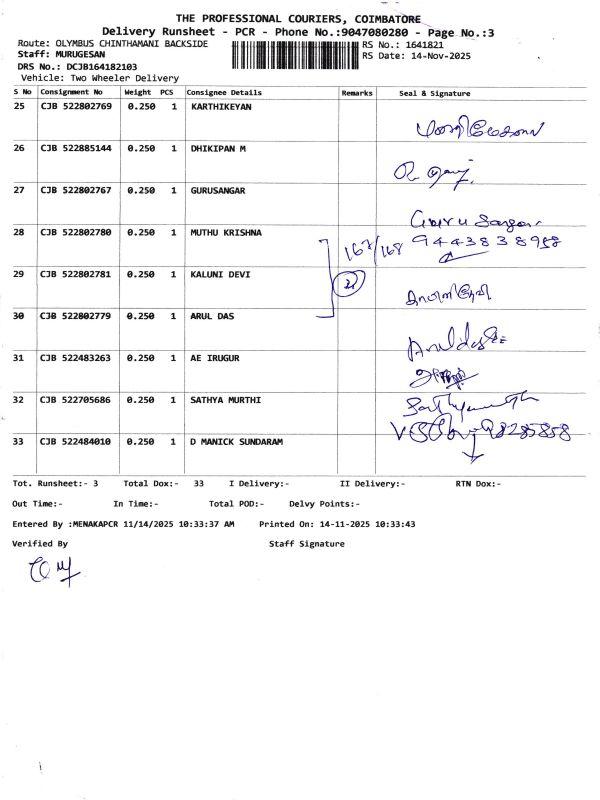 THE PROFESSIONAL COURIERS, COIMBATORE
Delivery Runsheet - PCR - Phone No.:9047080280 - Page No.:3
Route: OLYMBUS CHINTHAMANI BACKSIDE RS No.: 1641821
Staff: MURUGESAN RS Date: 14-Nov-2025
DRS No.: DCJB164182103
Vehicle: Two Wheeler Delivery
S No Consignment No Weight PCS Consignee Details Remarks Seal & Signature
25 CJB 522802769 0.250 1 KARTHIKEYAN
26 CJB 522885144 0.250 1 DHIKIPAN M
27 CJB 522802767 0.250 1 GURUSANGAR
28 CJB 522802780 0.250 1 MUTHU KRISHNA 167/168
29 CJB 522802781 0.250 1 KALUNI DEVI
30 CJB 522802779 0.250 1 ARUL DAS
31 CJB 522483263 0.250 1 AE IRUGUR
32 CJB 522705686 0.250 1 SATHYA MURTHI
33 CJB 522484010 0.250 1 D MANICK SUNDARAM
Tot. Runsheet:- 3 Total Dox:- 33 I Delivery:- II Delivery:- RTN Dox:-
Out Time:- In Time:- Total POD:- Delvy Points:-
Entered By :MENAKAPCR 11/14/2025 10:33:37 AM Printed On: 14-11-2025 10:33:43
Verified By Staff Signature